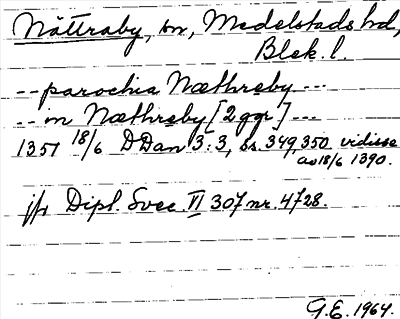 Nättraby, sn, Medelstads hd,
Blek. l.
-- parochia Næthreby ---
-- in Næthreby [2 ggr] ---
1351 18/6 DDan 3:3, s. 349, 350 vidisse
av 18/6 1390.
jfr Dipl. Svec. VI 307 nr. 4728.
G.E. 1964.